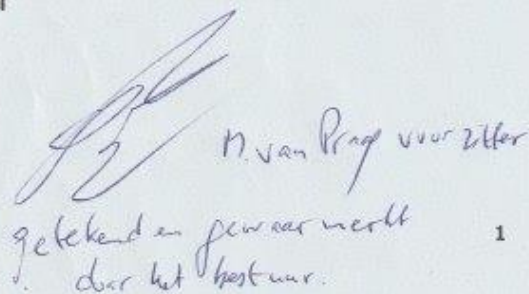 M. van Praag voorzitter
getekend en gewaarmerkt
door het bestuur.
1